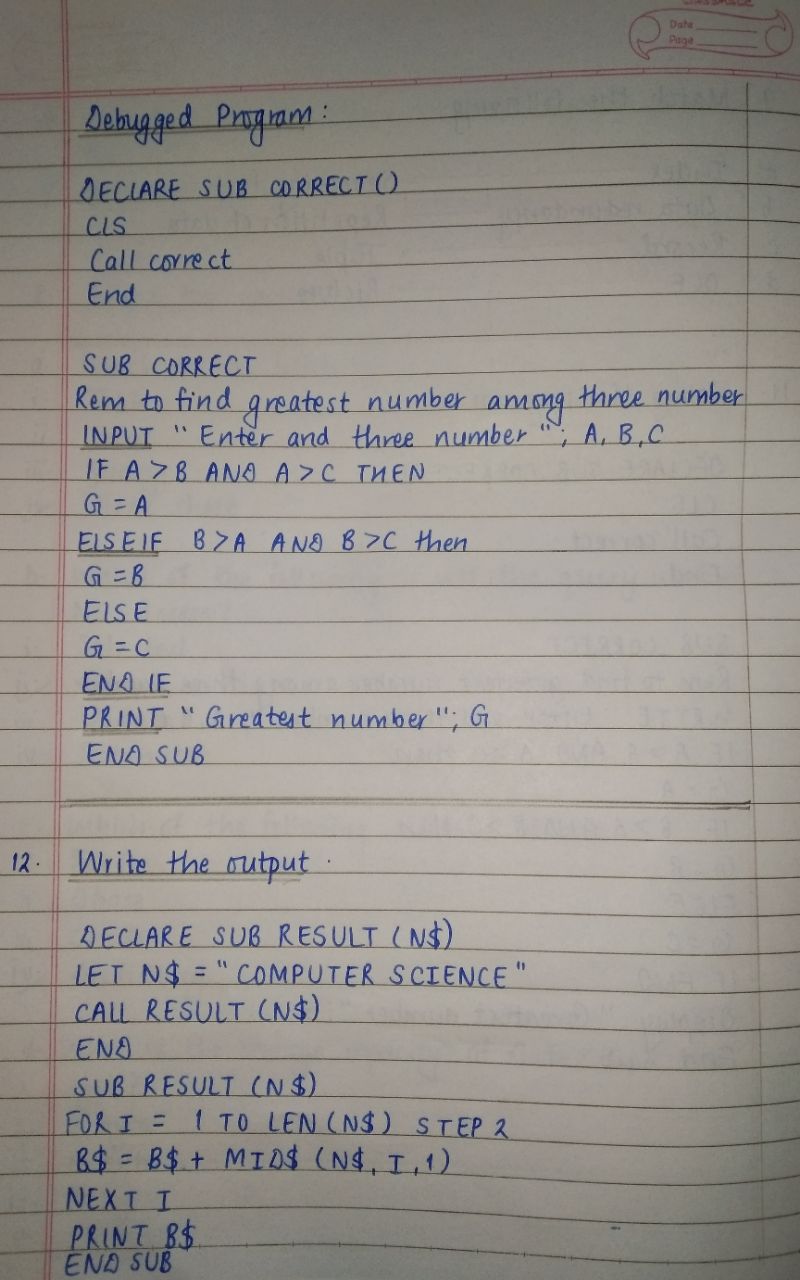 CLASSMATE
Date
Page
Debugged Program:
DECLARE SUB CORRECT()
CLS
Call correct
End
SUB CORRECT
Rem to find greatest number among three number
INPUT "Enter and three number"; A, B, C
IF A > B AND A > C THEN
G = A
ELSEIF B > A AND B > C then
G = B
ELSE
G = C
END IF
PRINT "Greatest number"; G
END SUB
12. Write the output.
DECLARE SUB RESULT (N$)
LET N$ = "COMPUTER SCIENCE"
CALL RESULT (N$)
END
SUB RESULT (N$)
FOR I = 1 TO LEN (N$) STEP 2
B$ = B$ + MID$ (N$, I, 1)
NEXT I
PRINT B$
END SUB